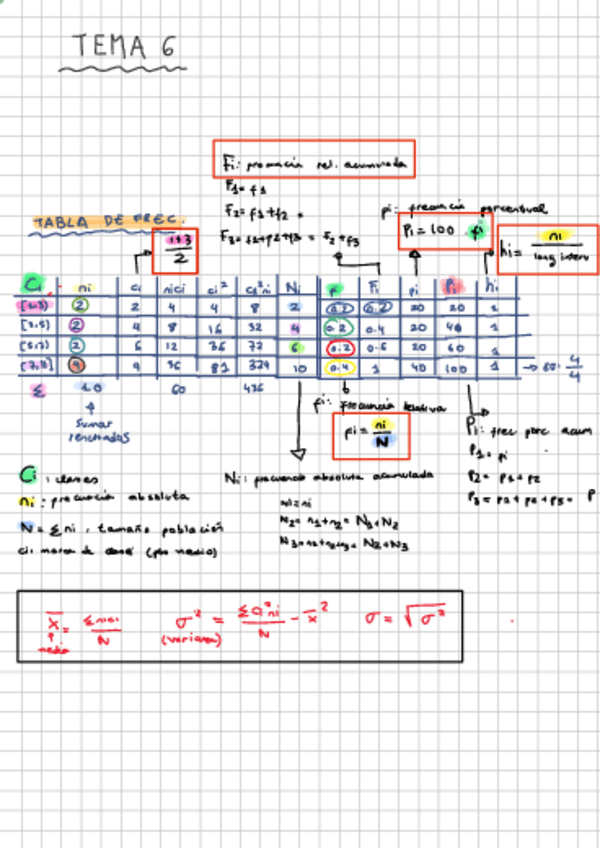 TEMA 6
Fi: frecuencia rel. acumulada
F1= f1
F2= f1+f2 =
F3= f1+f2+f3 = F2+f3
pi: frecuencia porcentual
Pi = 100 . fi
hi = ni / long interv
TABLA DE FREC.
1+3 / 2
Ci ni ci nici ci² ci²ni Ni fi Fi pi Pi hi
2 2 4 4 8 2 0.2 0.2 20 20 1
2 4 8 16 32 4 0.2 0.4 20 40 1
2 6 12 36 72 6 0.2 0.6 20 60 1
4 9 36 81 324 10 0.4 1 40 100 1
4/4
Σ 10 60 436
sumar
fi: frecuencia relativa
fi = ni / N
Pi: frec porc acum
P1 = pi
P2 = p1+p2
Ci: clases
ni: frecuencia absoluta
N = Σni, tamaño población
ci: marca de clase (pto medio)
Ni: frecuencia absoluta acumulada
N1=n1
N2= n1+n2= N1+N2
N3=n1+n2+n3= N2+N3
x̄ = Σnici / N
media
σ² = Σci²ni / N - x̄²
(varianza)
σ = √σ²